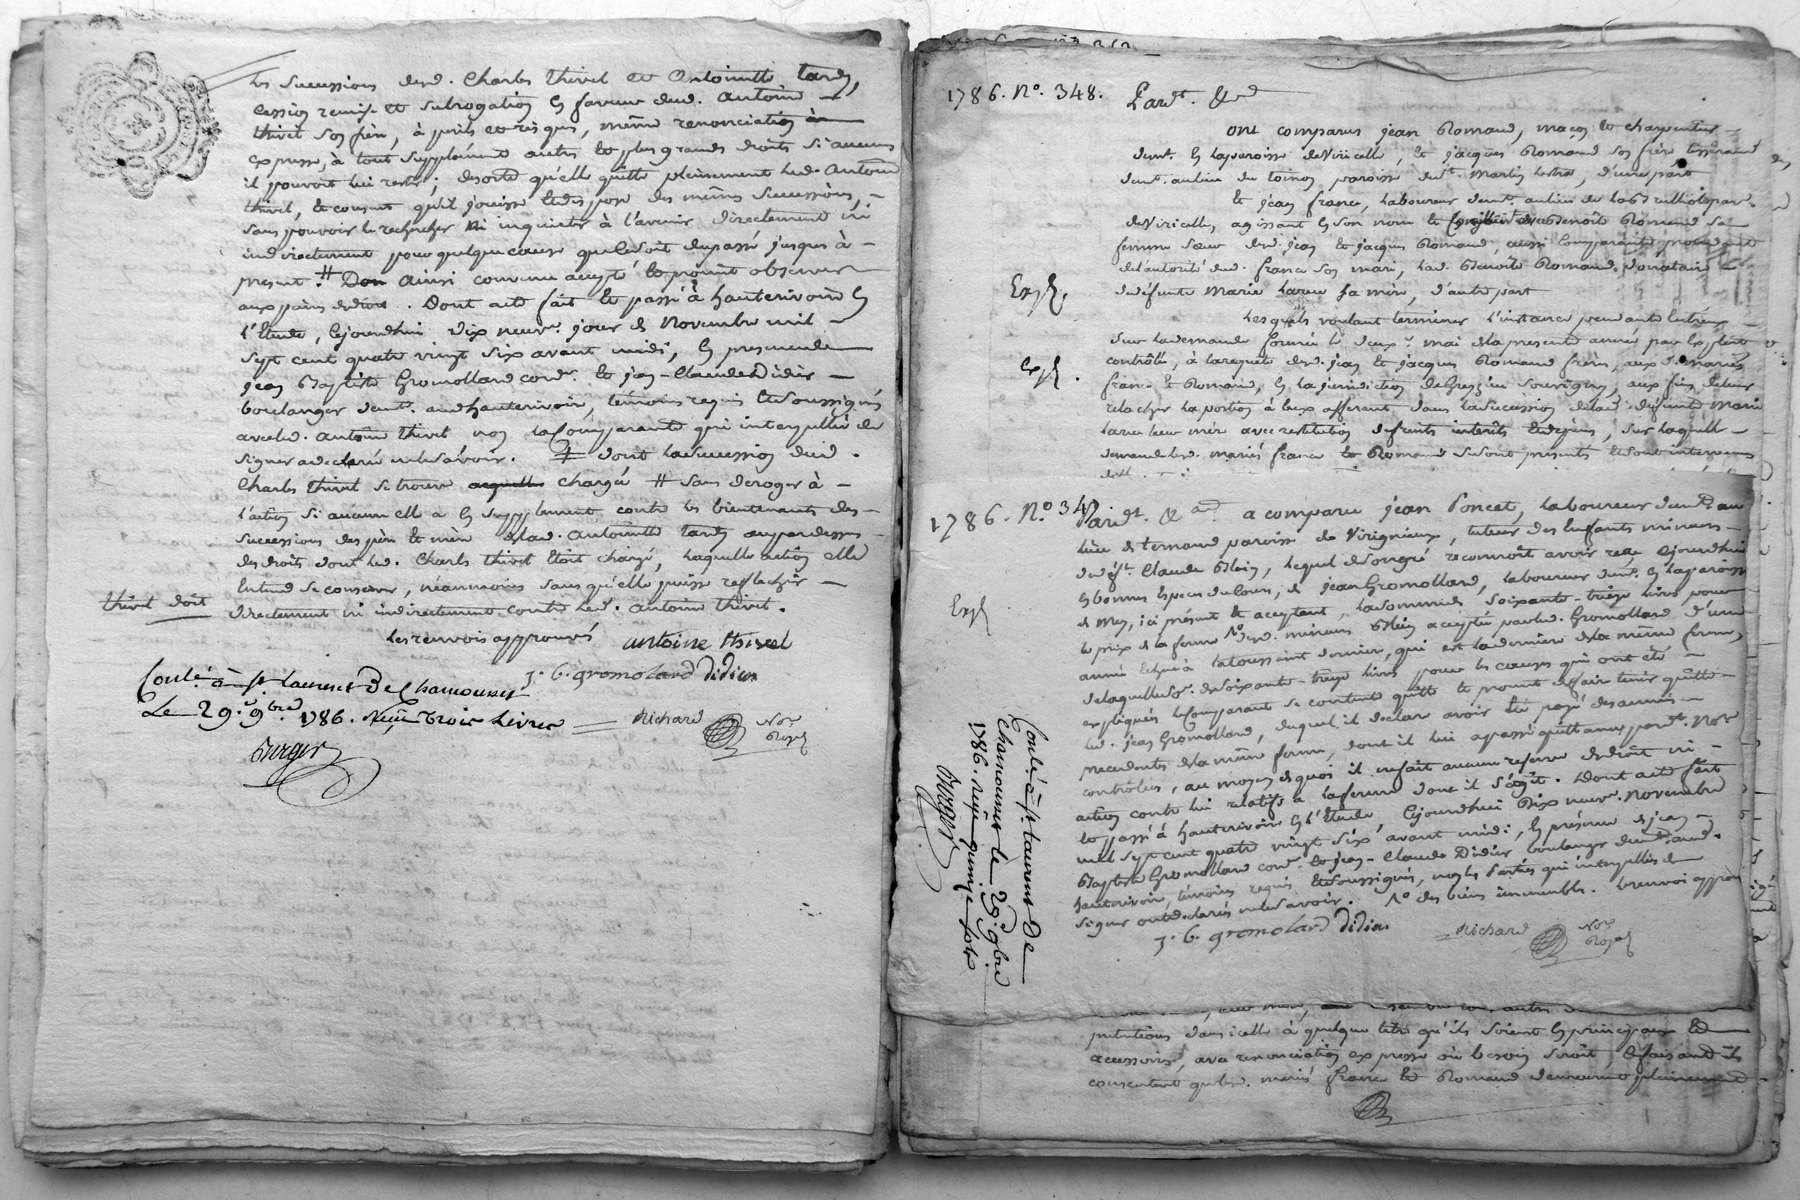 les successions desd. Charles thivel et Antoinette tardy,
cession remise et subrogation en faveur dud. Antoine
thivel son frère, à périls et risques, même renonciation
expresse, à tout supplément autres et plus grands droits si aucuns
il pouvoit lui rester, desorte qu'elle quitte pleinement led. Antoine
thivel, et consent qu'il jouisse et dispose des mêmes successions,
sans pouvoir le rechercher ni inquieter à l'avenir directement ni
indirectement pour quelque cause que ce soit du passé jusques à
present. # Ainsi convenu accepté et promit observer
aux peines de droit. Dont acte fait et passé à hauterivoire en
l'Etude, cejourdhui dix neuv.e jour de Novembre mil
sept cent quatre vingt six avant midi, en presence de
jean Baptiste Gromolland cord.r et jean-Claude Didier
boulanger demt. aud hauterivoire, témoins requis et soussignés
avec led. antoine thivel non la Comparante qui interpellée de
signer a declaré ne le savoir. # dont la succession dud.
Charles thivel se trouve chargée # sans deroger à
l'action si aucune elle a en supplement contre les bientenants des
successions des père et mère de lad. antoinette tardy au par dessus
des droits dont led. Charles thivel étoit chargé, laquelle action elle
entend se conserver, néanmoins sans qu'elle puisse reflechir
thivel doit
directement ni indirectement contre led. antoine thivel.
les renvois approuvés antoine thivel
J. B. gromolard didier
Conlé à st laurent De Chamousset
Le 29. 9bre 1786. Reçu trois Livres
Richard No.re Royal
Burger
1786. No. 348. Pardt. &a
ont comparus jean Romand, maçon et charpentier
demt. en la paroisse de Viricelle, et jacques Romand son frère tisserand
demt. au lieu de toinon paroisse de st. Martin lestra, d'une part
et jean france, laboureur demt. au lieu de
de Viricelle, agissant en son nom et Benoîte Romand sa
femme sœur desd. jean et jacques Romand aussi Comparante procedant
de l'autorité dud. france son mari, lad. Benoîte Romand donataire
Expé.
de défunte Marie sa mère, d'autre part
Lesquels voulant terminer l'instance pendante entr'eux
sur la demande formée le deux mai de la presente année par Exploit
contrôlé, à la requete desd. jean et jacques Romand frères, aux d. mariés
Expé.
france et Romand, en la juridiction de souvigny, aux fins de leur
relacher la portion à eux afferant dans la succession de lad. défunte Marie
leur mère avec restitution de fruits interêts et depens, sur laquelle
demande lesd. mariés france et Romand se sont presentés et sont intervenus
1786. No. 347
Pardt. &a a comparu jean Poncet, laboureur demt. au
lieu de ternand paroisse de Virigneux, tuteur des Enfants mineurs
de déft. Claude Blein, lequel de son gré reconnoît avoir reçu cejourdhui
en bonnes Especes du Cours, de jean Gromolland, laboureur demt. en la paroisse
Expé
de Meys, ici présent et acceptant, la somme de soixante-treize livres pour
le prix de la ferme desd. mineurs Blein acceptée par led. Gromolland d'une
année échue à la toussaint dernier, qui est la derniere de la même ferme,
de laquelle so.e de soixante-treize livres pour les causes qui ont été
expliquées le Comparant se contente quitte et promet en faire tenir quitte
led. jean Gromolland, duquel il declare avoir été payé des années
precedentes de la même ferme, dont il lui a passé quittances pardt. No.re
contrôlées, au moyen de quoi il ne fait aucune reserve de droit ni
action contre lui relatifs à la ferme dont il s'agit. Dont acte fait
et passé à hauterivoire en l'Etude, cejourdhui dix neuv.e Novembre
mil sept cent quatre vingt six, avant midi, en présence de jean
Baptiste Gromolland cord.r et jean-Claude Didier boulanger demt. aud.
hauterivoire, témoins requis et soussignés, non les Parties qui interpellées de
signer ont déclaré ne le savoir. No des biens immeubles. renvoi approuvé
J. B. gromolard didier
Richard No.re Royal
Conlé à st. laurent de
Chamousset le 29. 9bre
1786. reçu quinze sols
Burger
pretentions dans icelle à quelque titre qu'ils soient en principaux et
accessoires, avec renonciation expresse où besoin seroit, ce faisant ils
consentent que lesd. mariés france et Romand demeurent pleinement